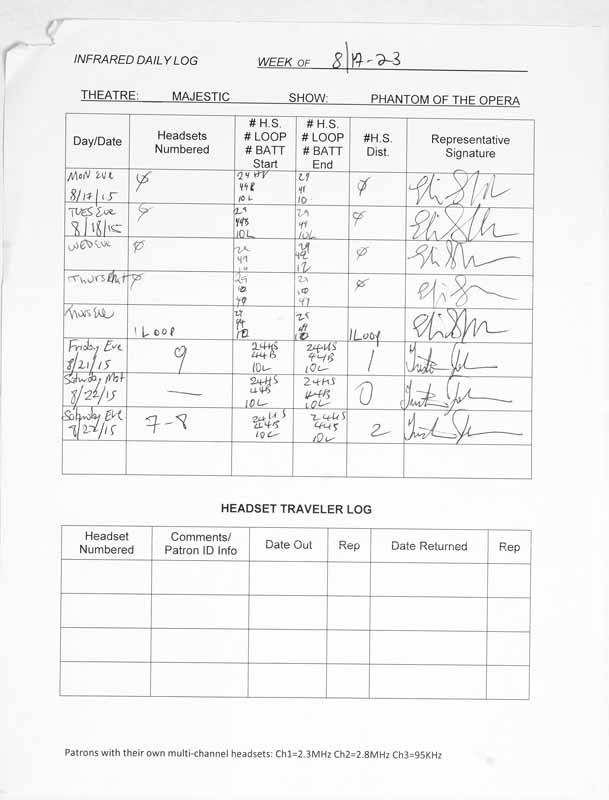 INFRARED DAILY LOG WEEK OF 8/17-23
THEATRE: MAJESTIC SHOW: PHANTOM OF THE OPERA
Day/Date Headsets Numbered # H.S. # LOOP # BATT Start # H.S. # LOOP # BATT End #H.S. Dist. Representative Signature
MON Eve 8/17/15 Ø 10L 10 Ø
TUES Eve 8/18/15 Ø 10L 10L Ø
WED Eve Ø Ø
Thurs Mat Ø Ø
Thurs Eve 1 LOOP 1 LOOP
Friday Eve 8/21/15 9 24HS 44B 10L 24HS 44B 10L 1
Saturday Mat 8/22/15 — 24HS 44B 10L 24HS 44B 10L 0
Saturday Eve 8/22/15 7-8 24HS 44B 10L 24HS 10L 2
HEADSET TRAVELER LOG
Headset Numbered Comments/ Patron ID Info Date Out Rep Date Returned Rep
Patrons with their own multi-channel headsets: Ch1=2.3MHz Ch2=2.8MHz Ch3=95KHz